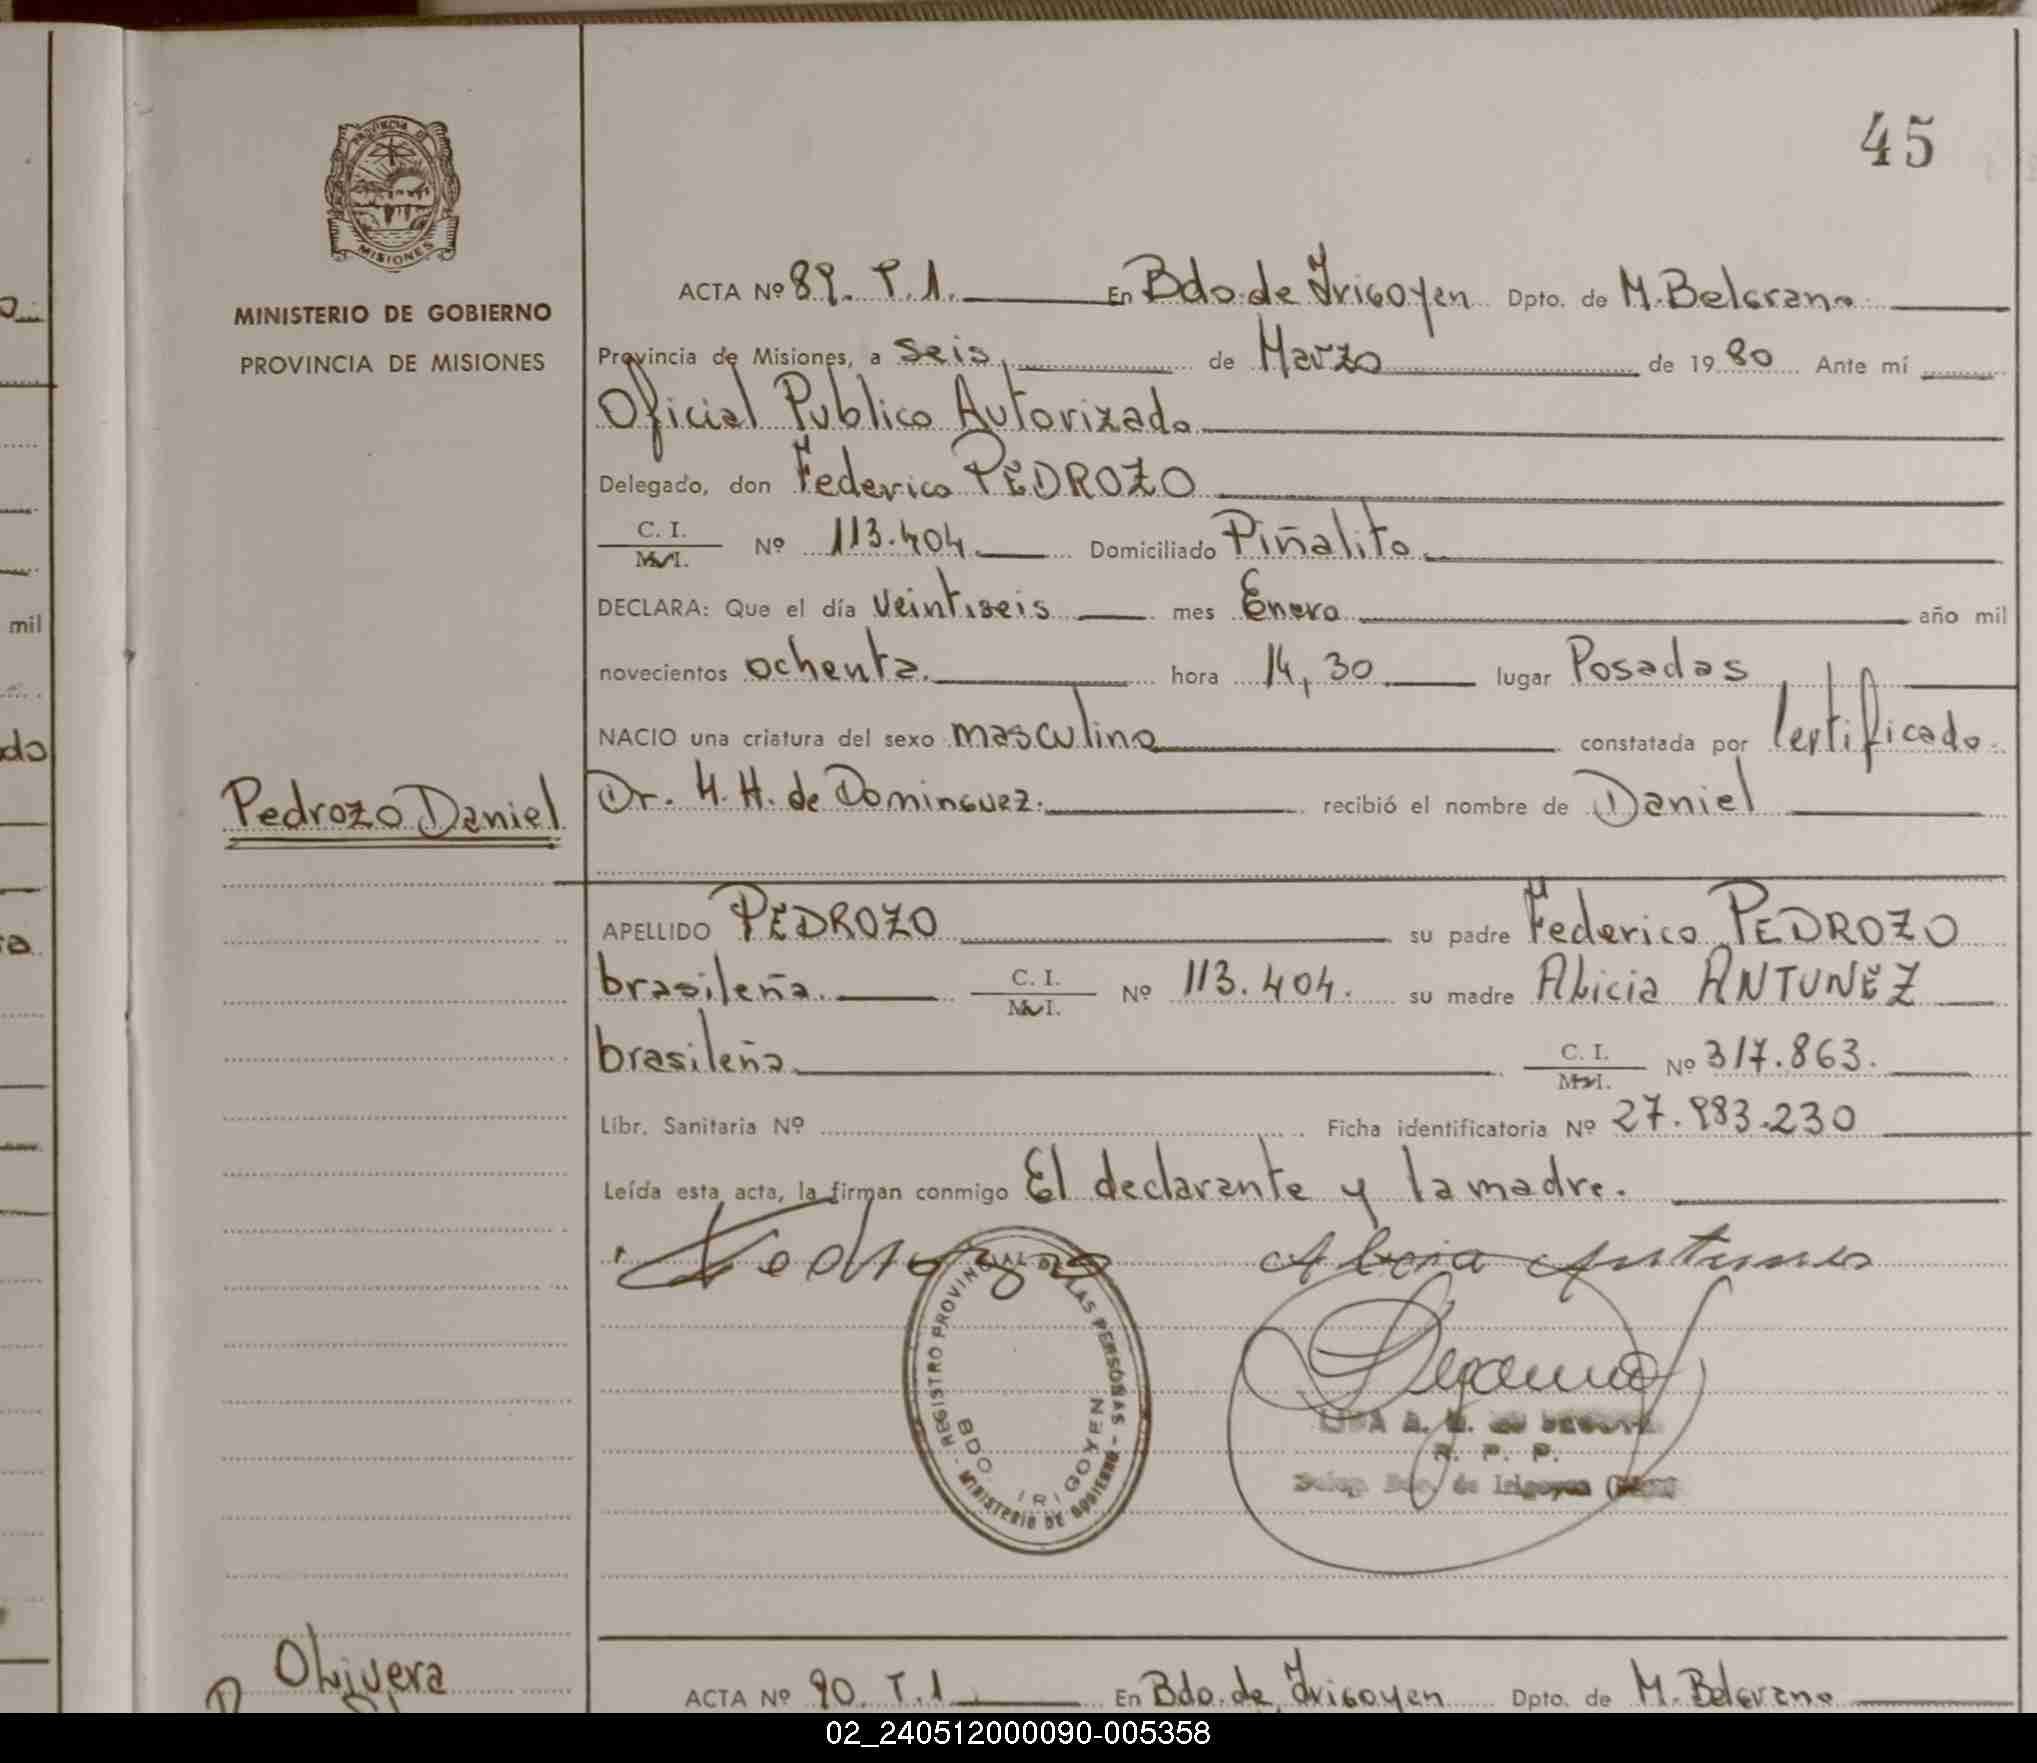 45
PROVINCIA DE
MISIONES
MINISTERIO DE GOBIERNO
PROVINCIA DE MISIONES
ACTA Nº 89. T.1. En Bdo. de Irigoyen Dpto. de M. Belgrano
Provincia de Misiones, a seis, de Marzo de 1980 Ante mí
Oficial Publico Autorizado
Delegado, don Federico PEDROZO
C. I. / M. I. Nº 113.404 Domiciliado Piñalito
DECLARA: Que el día veintiseis mes Enero año mil
novecientos ochenta. hora 14,30 lugar Posadas
NACIO una criatura del sexo masculino constatada por Certificado
Pedrozo Daniel
Dr. H. H. de Dominguez. recibió el nombre de Daniel
APELLIDO PEDROZO su padre Federico PEDROZO
brasileña. C. I. / M. I. Nº 113.404. su madre Alicia ANTUNEZ
brasileña C. I. / M. I. Nº 317.863.
Libr. Sanitaria Nº Ficha identificatoria Nº 27.983.230
Leída esta acta, la firman conmigo El declarante y la madre.
Pedrozo Alicia Antunes
REGISTRO PROVINCIAL DE LAS PERSONAS - MINISTERIO DE GOBIERNO -
BDO. IRIGOYEN
R. P. P.
de Irigoyen
Olivera
ACTA Nº 90. T.1 En Bdo. de Irigoyen Dpto. de M. Belgrano
mil
02_240512000090-005358